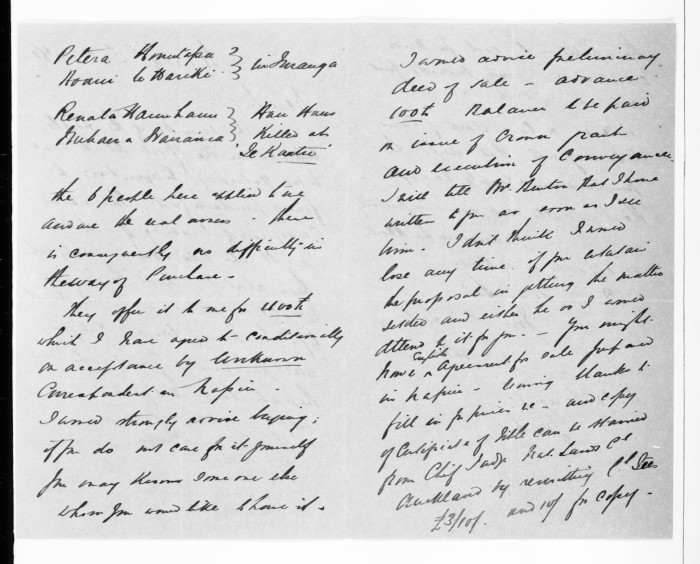 Petera
Hoani te Hariki } in Turanga
Renata } Hau Haus
Killed at
Te
the 6 people here applied to me
and are the real owners - there
is consequently no difficulty in
the way of Purchase -
They offer it to me for
which I have agreed to conditionally
on acceptance by Unknown
Correspondent in Napier -
I would strongly advise buying;
if you do not care for it yourself
you may know some one else
whom you would like to have it -
I would advise preliminary
deed of sale - advance
100£ Balance to be paid
on issue of Crown grant
and execution of Conveyance
I will tell Mr. that I have
written to you as soon as I see
him - I don't think I would
lose any time if you entertain
the proposal in getting the matter
settled and either he or I would
attend to it for you - You might
have English Agreement for sale prepared
in Napier - leaving blanks to
fill in for prices &c - and copy
of Certificate of Title can be obtained
from Chief Judge Nat. Lands Ct
Auckland by remitting Ct Fees
£3/10/. and 10/ for copy -